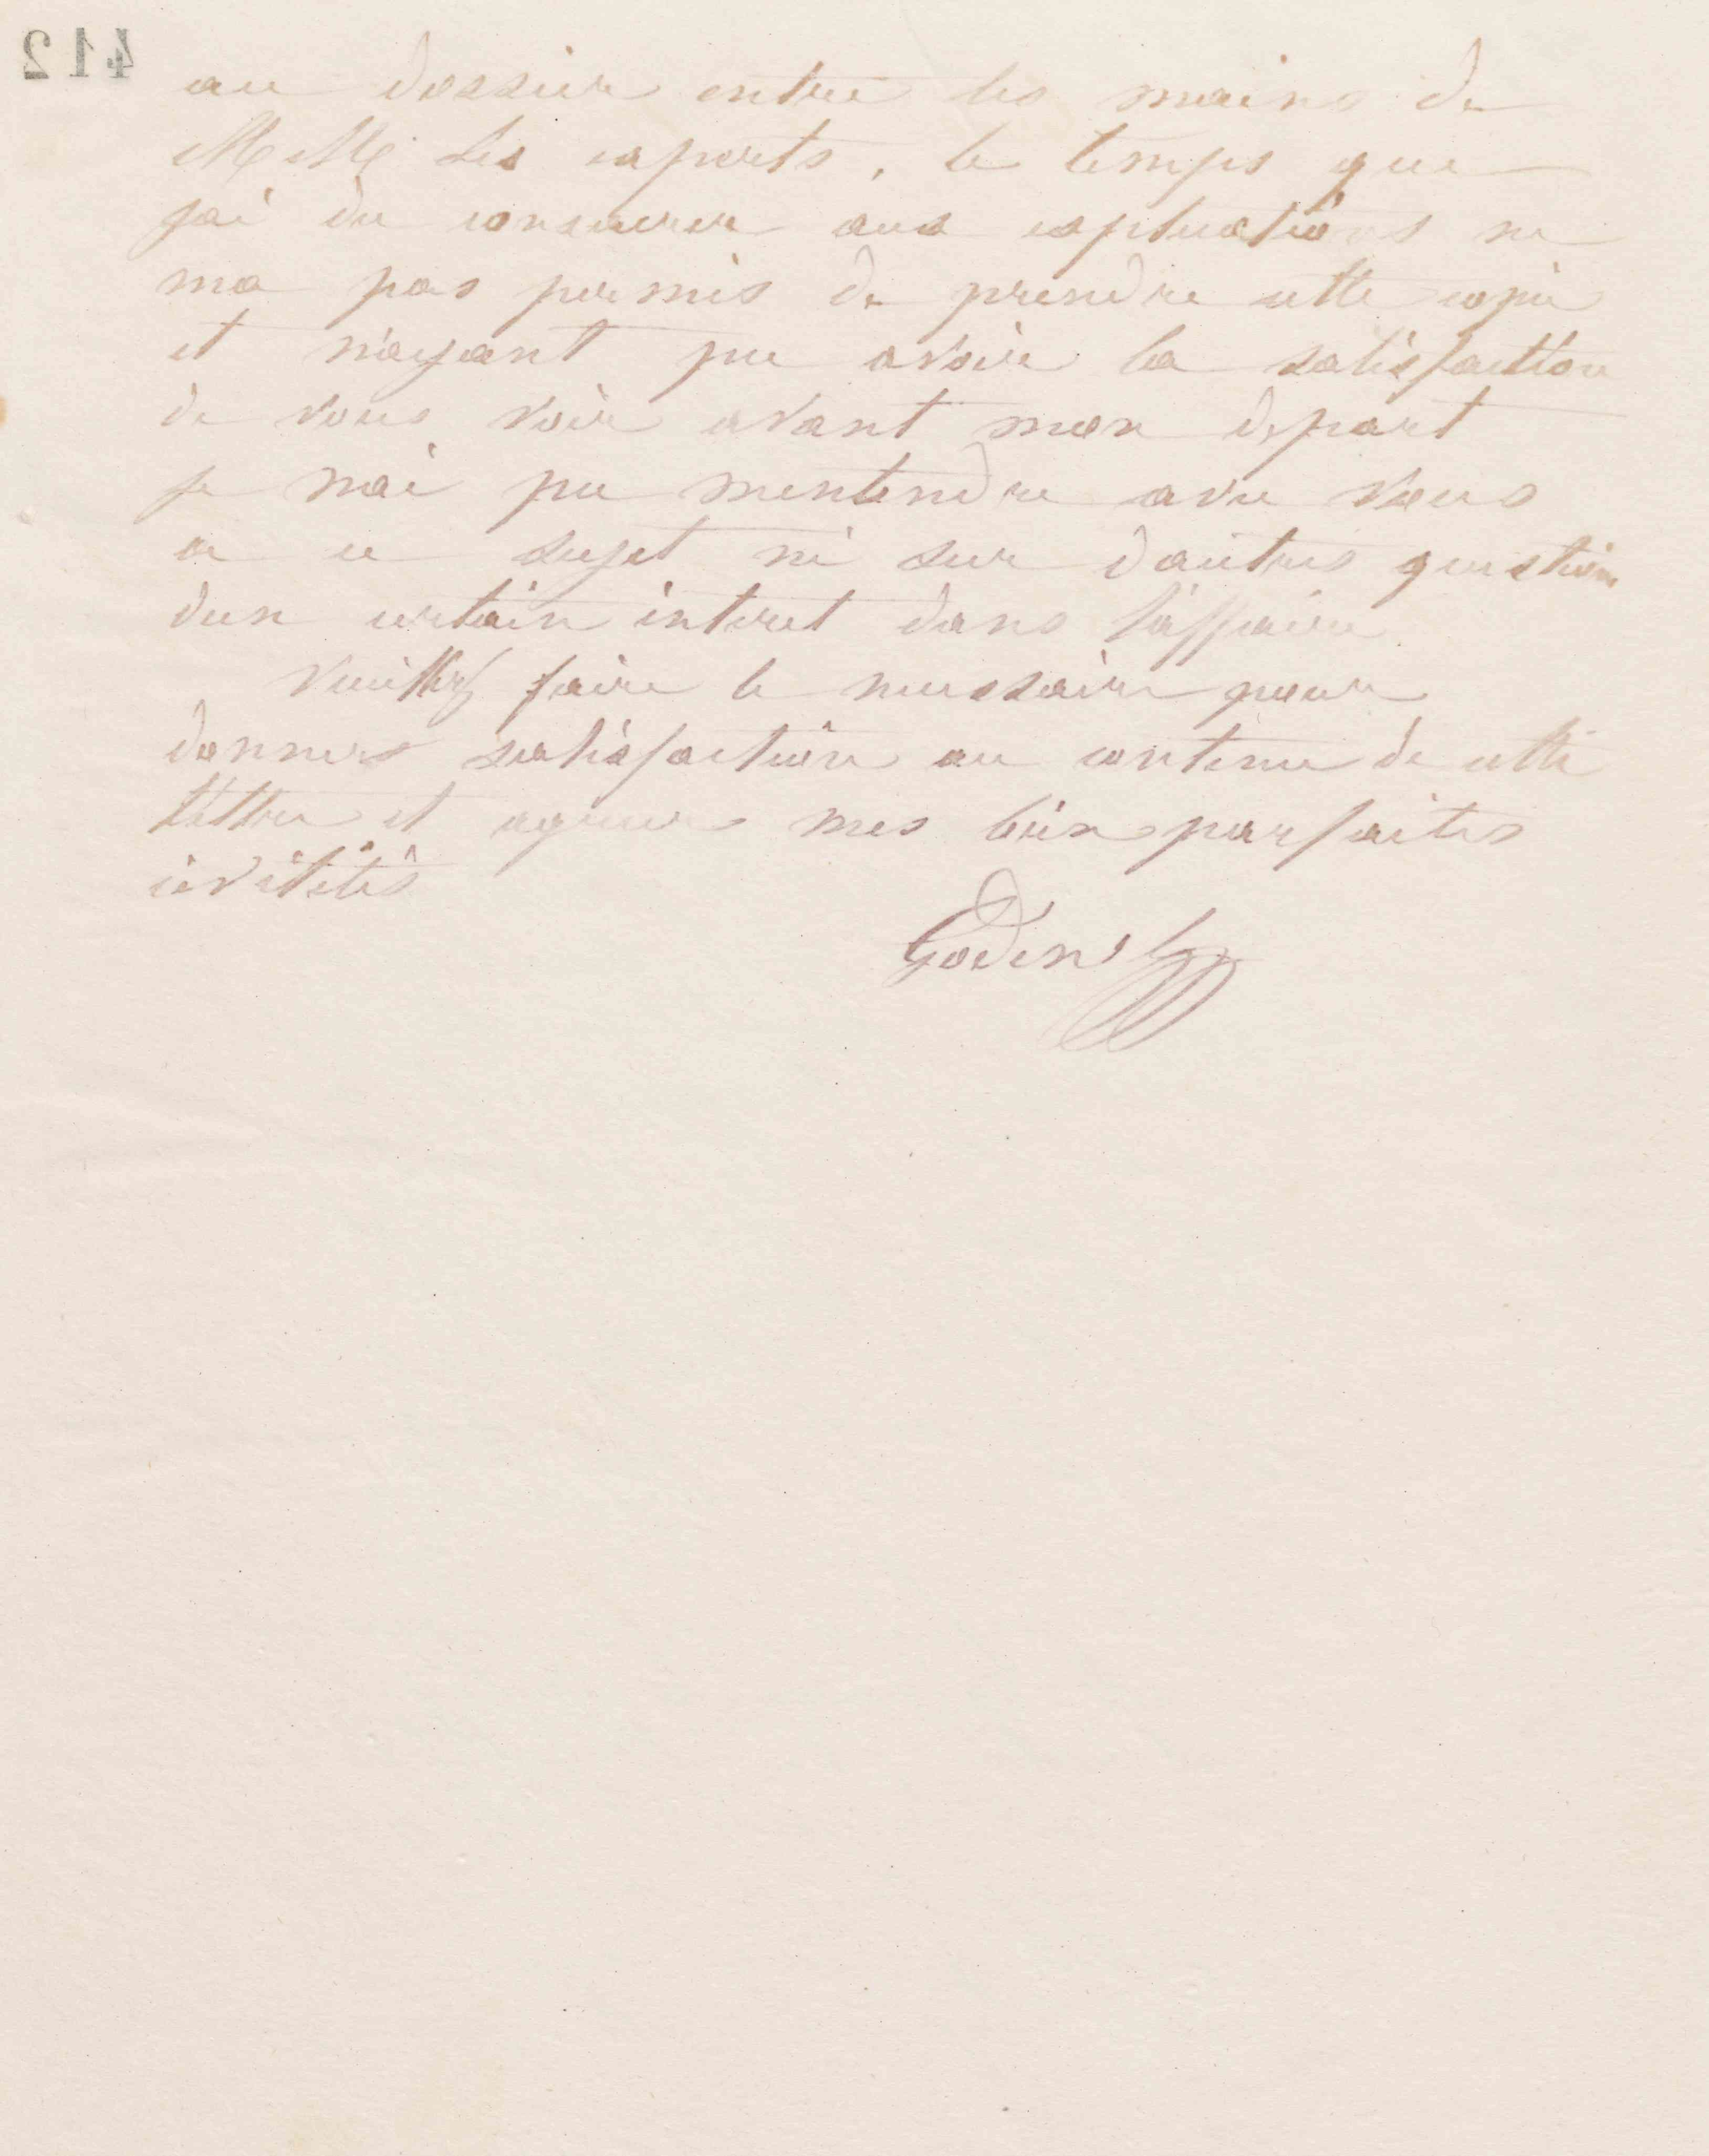 412
au dossier entre les mains de
MM les experts, le temps que
jai du consacrer aux explications ne
ma pas permis de prendre cette copie
et nayant pu avoir la satisfaction
de vous voir avant mon depart
je nai pu mentendre avec vous
a ce sujet ni sur dautres question
dun certain interet dans laffaire
veuillez faire le necessaire pour
donner satisfaction au contenu de cette
lettre et agreer mes bien parfaites
civilités
Godin